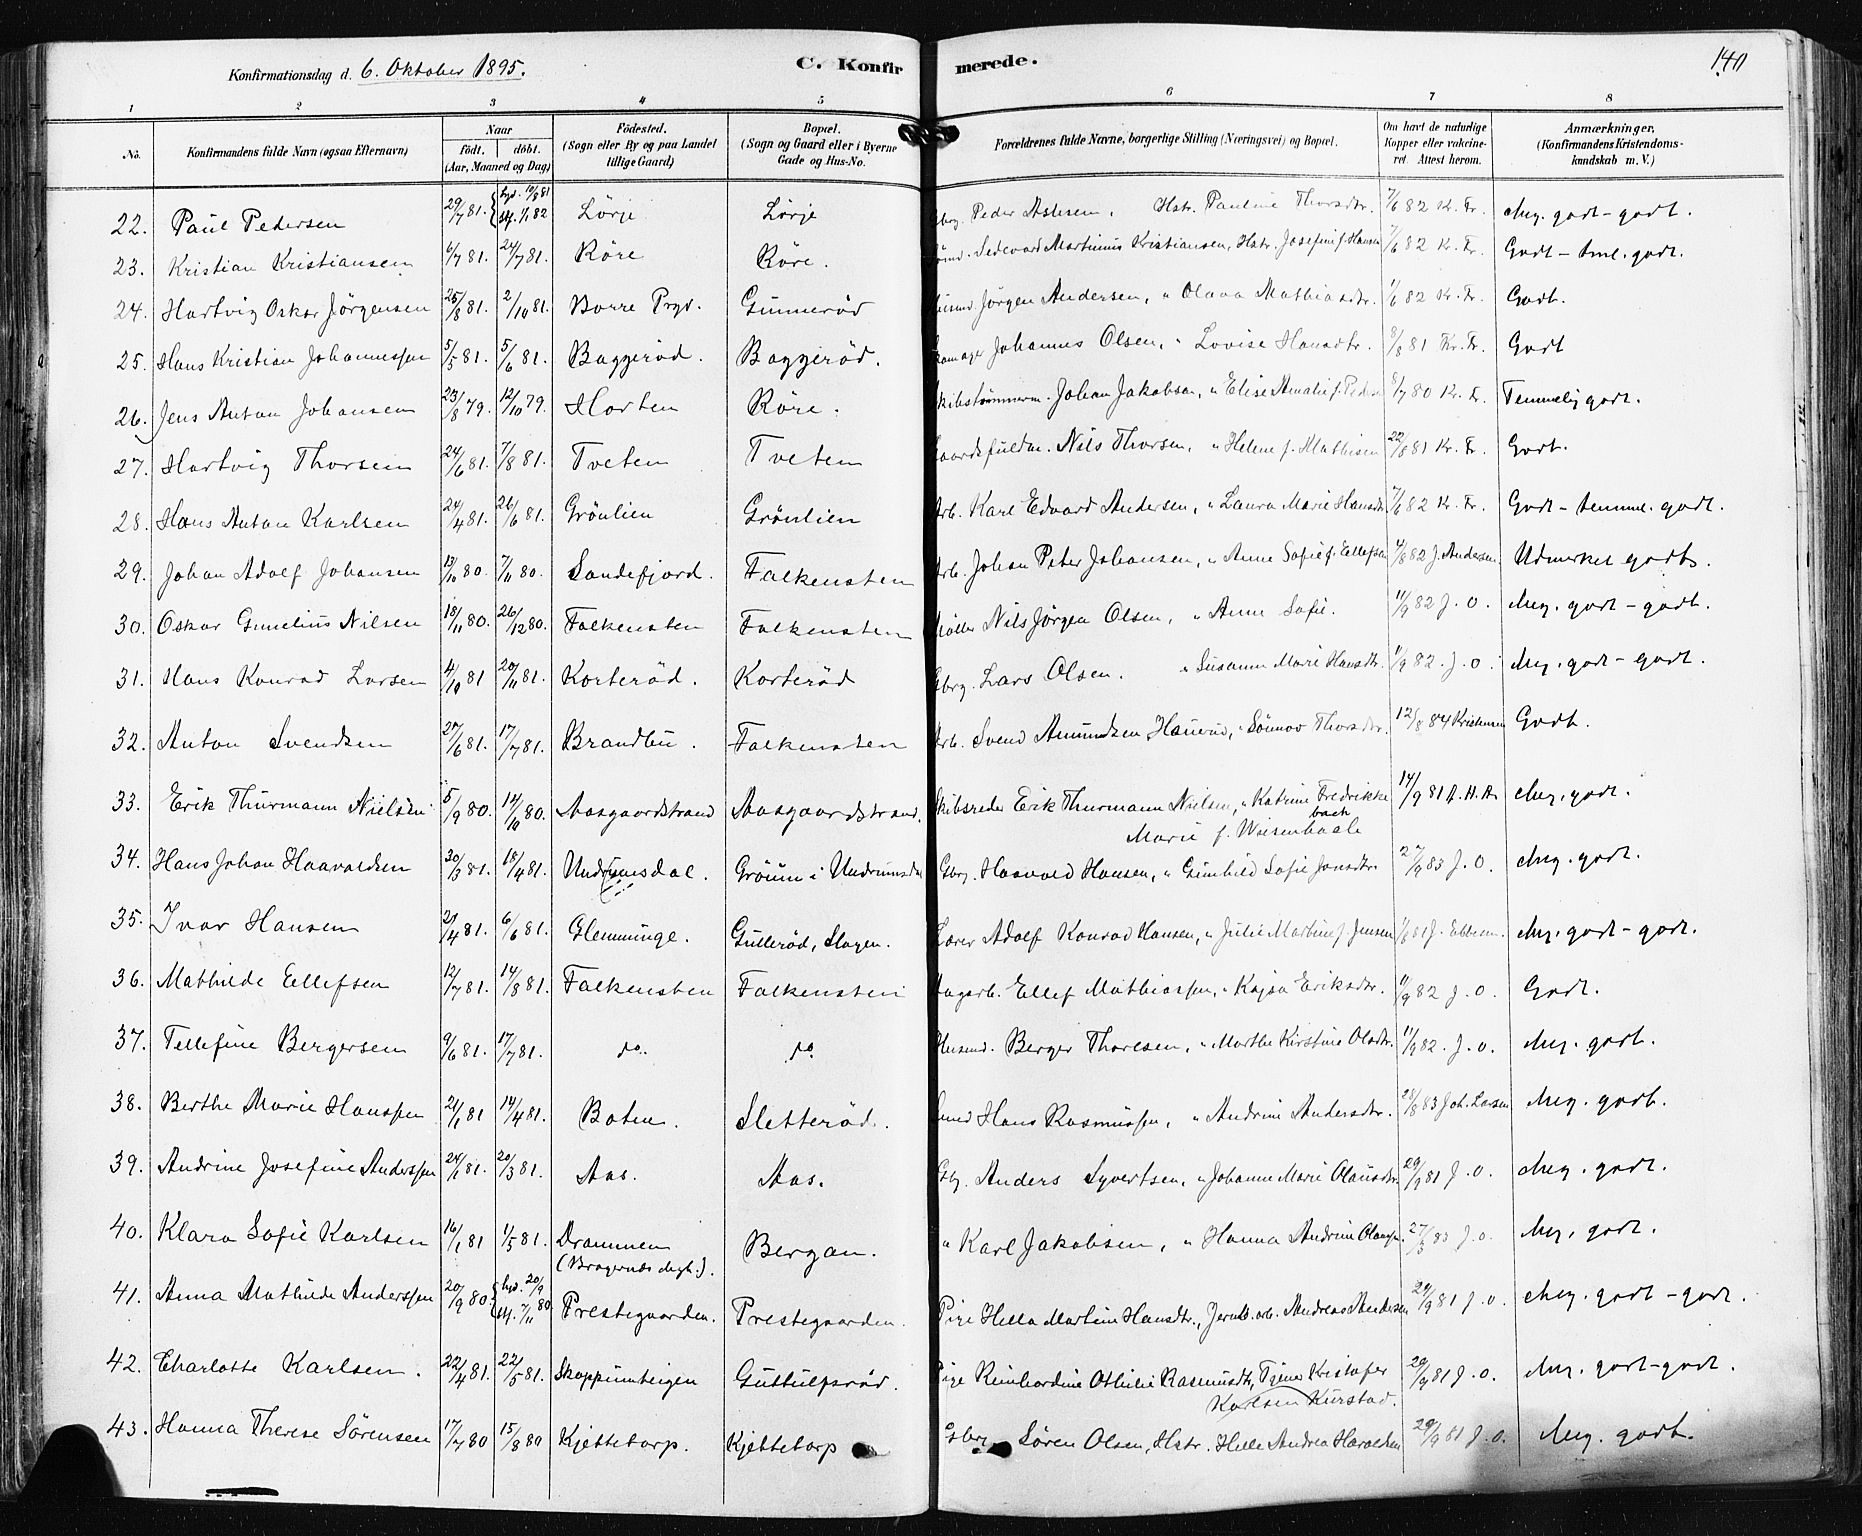 Konfirmationsdag d. 6. Oktober 1895.
C. Konfirmerede.
140
1 2 3 4 5 6 7 8
No.
Konfirmandens fulde Navn (ogsaa Efternavn)
Naar
født. døbt.
(Aar, Maaned og Dag)
Fødested.
(Sogn eller By og paa Landet
tillige Gaard)
Bopæl.
(Sogn og Gaard eller i Byerne
Gade og Hus-No.
Forældrenes fulde Navne, borgerlige Stilling (Næringsvei) og Bopæl.
Om havt de naturlige
Kopper eller vakcine-
ret. Attest herom.
Anmærkninger.
(Konfirmandens Kristendoms-
kundskab m. V.)
22. Paul Pedersen 29/7 81. Lörje Lörje Gbrg. Peder Hstr. Pauline Thorsdtr. 7/6 82 Kr. Fr. Meg. godt - godt.
23. Kristian Kristiansen 6/7 81. 24/7 81. Röre Röre. Martinius Kristiansen, Hstr. Josefine f. Hansen 7/6 82 Kr. Fr. Godt - tml. godt.
24. Hartvig Oskar Jörgensen 25/8 81. 2/10 81. Borre Prgd. Gunneröd Jörgen Andersen, " Olava Mathiasdtr. 7/6 82 Kr. Fr. Godt.
25. Hans Kristian Johannessen 5/5 81. 5/6 81. Baggeröd. Baggeröd. Johannes Olsen, " Lovise Hansdtr. 9/8 81 Kr. Fr. Godt
26. Jens Anton Johansen 23/8 79. 12/10 79. Horten Röre. Skibstömmerm. Johan Jakobsen, " Elise Amalie f. Peders 9/7 80 Kr. Fr. Temmelig godt.
27. Hartvig Thorsen 24/6 81. 7/8 81. Tveten Tveten Gaardsfuldm. Nils Thorsen, " Helene f. Mathisen 22/8 81 Kr. Fr. Godt.
28. Hans Anton Karlsen 24/4 81. 26/6 81. Grönlien Grönlien Arb. Karl Edvard Andersen, " Laura Marie Hansdtr. 7/6 82 Kr. Fr. Godt - temmel. godt.
29. Johan Adolf Johansen 19/10 80. 7/11 80. Sandefjord. Falkensten Arb. Johan Peter Johansen, " Anne Sofie f. Ellefsen 4/8 82 J. Andersen Udmerket godt.
30. Oskar Gunelius Nilsen 18/11 80. 26/12 80. Falkensten Falkensten Möller Nils Jörgen Olsen, " Anne Sofie. 11/9 82 J. O. Meg. godt - godt.
31. Hans Konrad Larsen 4/10 81 20/11 81. Korteröd. Korteröd Gbrg. Lars Olsen. " Susanne Marie Hansdtr. 11/9 82. J. O. Meg. godt - godt.
32. Anton Svendsen 27/6 81. 17/7 81. Brandbu. Falkensten Arb. Svend Amundsen " Sönnov Thorsdtr. 12/8 84 Kristensen Godt.
33. Erik Thurmann Nielsen 5/9 80. 14/10 80. Aasgaardstrand Aasgaardstrand. Skibsreder Erik Thurmann Nielsen, " Katrine Fredrikke 14/9 81 Meg. godt.
Marie f.
34. Hans Johan Haavaldsen 30/3 81. 18/4 81. Undrumsdal. Gröum i Undrumsdal Gbrg. Haavald Hansen, " Gunhild Sofie Jonsdtr. 27/9 83 J. O. Meg. godt.
35. Ivar Hansen 21/4 81. 6/6 81. Glemminge. Gulleröd, Slagen. Lærer Adolf Konrad Hansen, " Julie Martine f. Jensen Meg. godt - godt.
36. Mathilde Ellefsen 12/7 81. 14/8 81. Falkensten Falkensten Dagarb. Ellef Mathiassen, " Kajsa Eriksdtr. 11/9 82 J. O. Godt.
37. Tellefine Bergersen 9/6 81. 17/7 81. do. do Husmd. Berger Thoresen, " Marthe Kirstine Olsdtr. 11/9 82. J. O. Meg. godt.
38. Berthe Marie Hanssen 21/1 81 14/4 81. Baten. Sletteröd. Hans Rasmussen, " Andrine Andersdtr. 28/8 83 Joh. Larsen Meg. godt.
39. Andrine Josefine Anderssen 24/1 81. 20/3 81. Aas. Aas. Gbg. Anders Syvertsen, " Johanne Marie Olausdtr. 29/9 81 J. O. Meg. godt.
40. Klara Sofie Karlsen 16/1 81 1/5 81. Drammen Bergan. " Karl Jakobsen, " Hanna Andrine Olaus 27/3 83 J. O. Meg. godt.
(Bragernæs Mgh.).
41. Anna Mathilde Anderssen 20/9 80 Prestegaarden. Prestegaarden. Pige Hella Martine Hansdtr., Jernb. arb. Andreas Andersen 29/9 81 J. O. Meg. godt - godt.
42. Charlotte Karlsen. 22/4 81. 22/5 81. Skoppumteigen Guttulfsröd. Pige Reinhardine Othilie Rasmusdtr, Tjener Kristofer 29/9 81 J. O. Meg. godt - godt.
Karlsen Kurstad.
43. Hanna Therese Sörensen 17/7 80 15/8 80 Kjettetorp. Kjettetorp Gbrg. Sören Olsen, Hstr. Helle Andrea Haraldsen 29/9 81 J. O. Meg. godt.